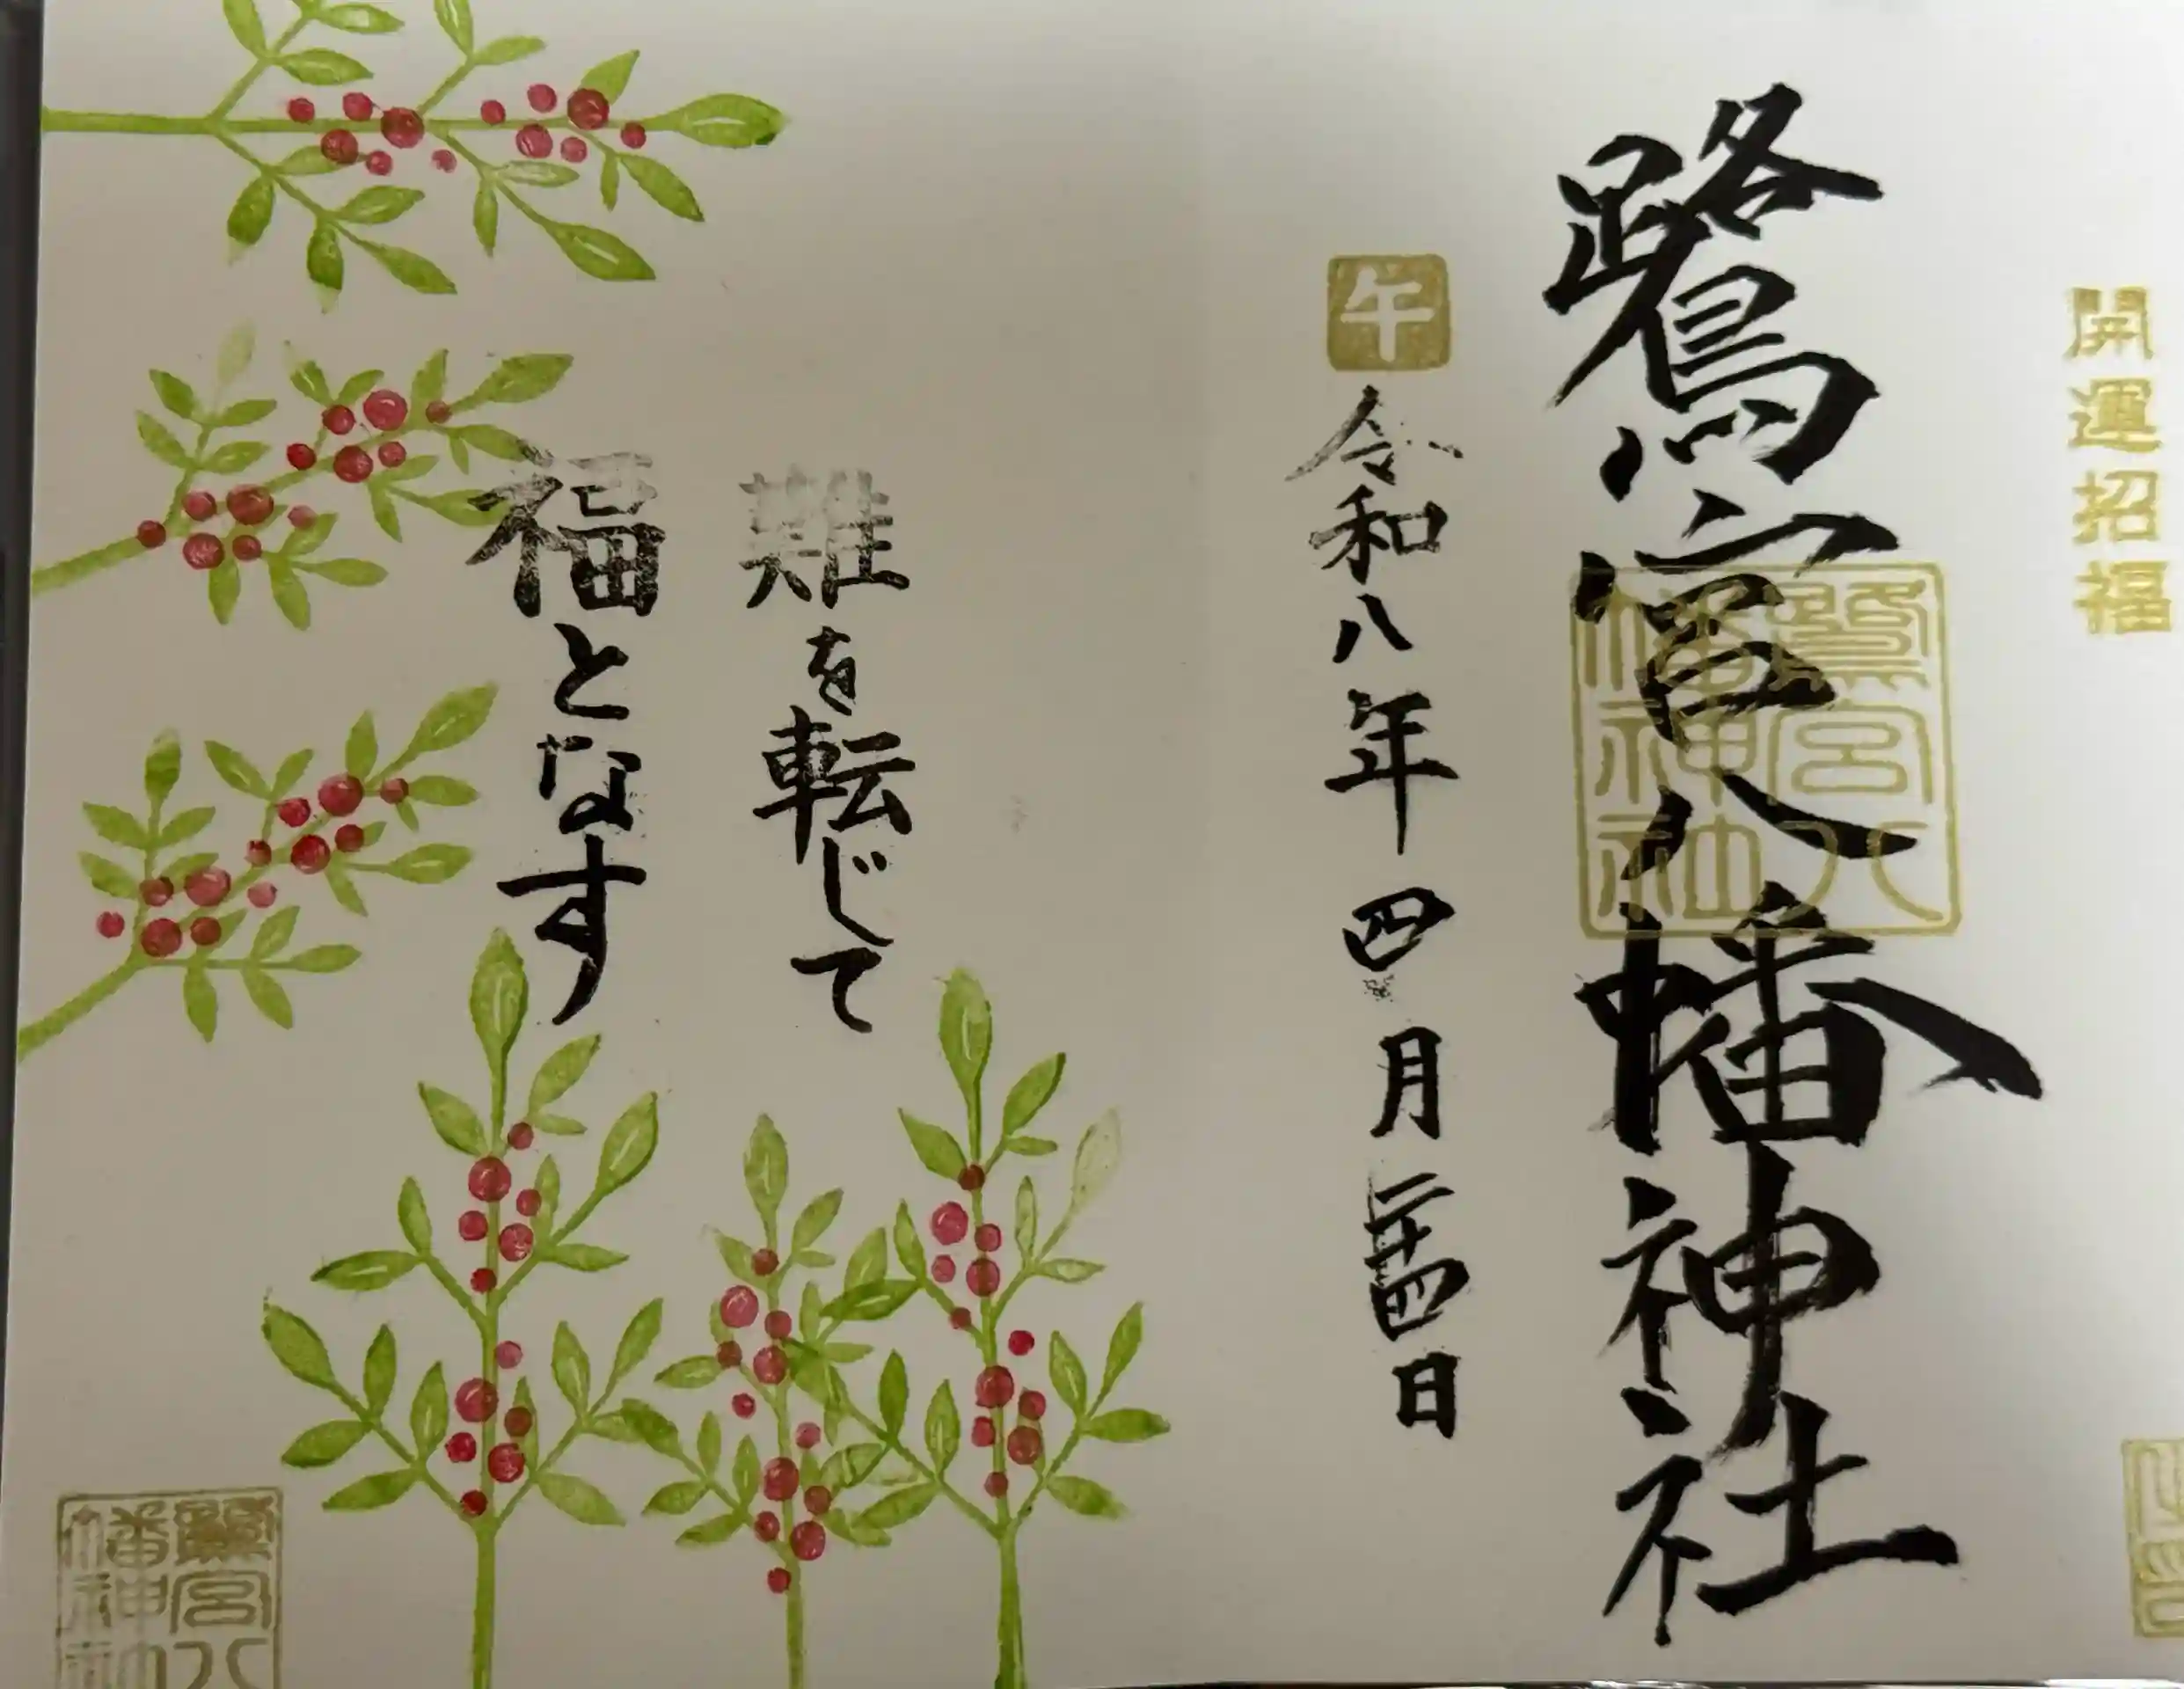 開運招福
鷺宮八幡神社
鷺宮八幡神社
午
令和八年四月二十四日
難を転じて
福となす
鷺宮八幡神社